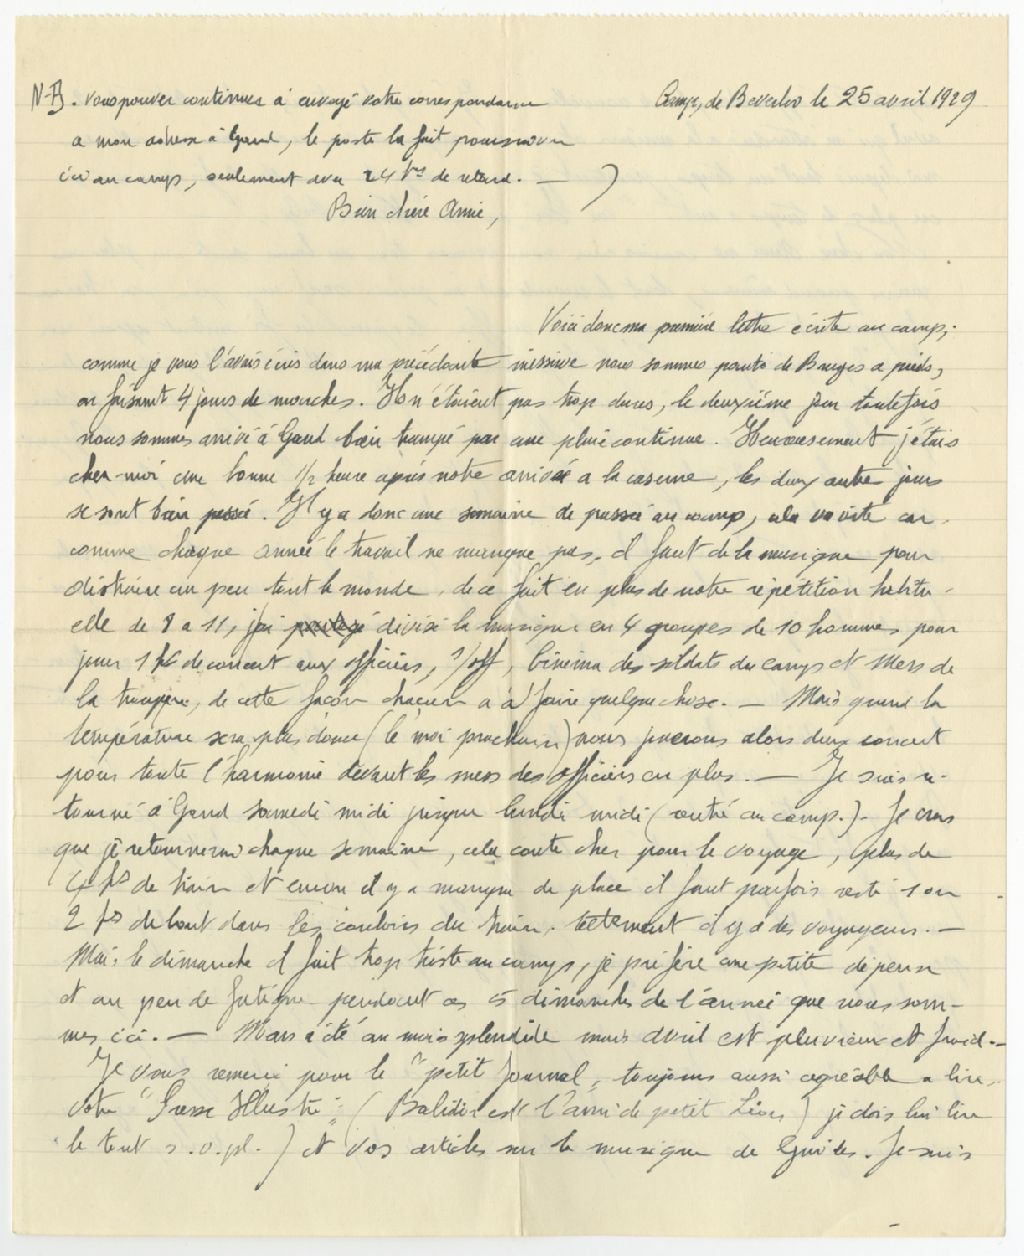 N-B. Vous pouvez continuer à envoyé votre correspondance
a mon adresse à Gand, le poste la fait poursuivre
ici au camp, seulement avec 24 hrs de retard. —
Camp de Beverloo le 25 avril 1929
Bien chère Amie,
Voici donc ma première lettre écrite au camp,
comme je vous l'avais écris dans ma précédante missive nous sommes partis de Bruges a pieds,
en faisant 4 jours de marches. Ils n'étaient pas trop dures, le deuxième jour toutefois
nous sommes arrivé à Gand bien trempé par une pluie continue. Heureusement j'étais
chez-moi une bonne 1/2 heure après notre arrivée a la caserne, les deux autre jours
se sont bien passé. Il y a donc une semaine de passée au camp, cela va vite car
comme chaque année le travail ne manque pas, il faut de la musique pour
distraire un peu tout le monde, de ce fait en plus de notre répétition habitu-
elle de 8 a 11, j'ai divisé la musique en 4 groupes de 10 hommes pour
jouer 1 h de concert aux officiers, s/off, Cinéma des soldats du camp et Mess de
la troupe, de cette façon chacun a à faire quelque chose. — Mais quand la
température sera plus douce (le moi prochain) nous jouerons alors deux concert
pour toute l'harmonie devant les mess des officiers en plus. — Je suis re-
tourné à Gand samedi midi jusque lundi midi (rentré au camp.). Je crois
que je retournerai chaque semaine, cela coute cher pour le voyage, (plus de
frs de train et encore il y a manque de place il faut parfois resté 1 ou
2 hrs debout dans les couloirs du train, tellement il y a des voyageurs. —
Mais le dimanche il fait trop triste au camp, je préfère une petite dépense
et un peu de fatigue pendant ces 5 dimanches de l'année que nous som-
mes ici. — Mars a été au mois splendide mais avril est pluvieux et froid. -
Je vous remerci pour le "petit Journal, toujours aussi agréable a lire,
votre "Presse Illustré" ( est l'ami de petit Léon) je dois lui lire
le tout s.v.pl.) et vos articles sur la musique de Guides. Je suis